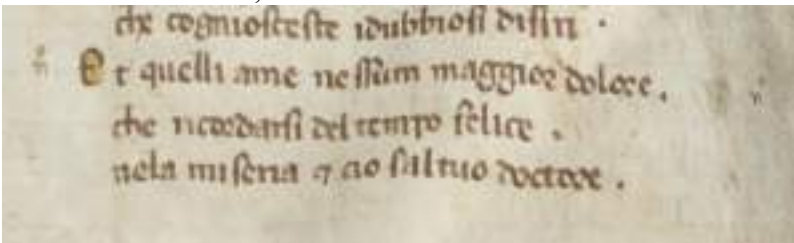 che cognosceste idubbiosi disiri .
Et quelli ame nessum maggior dolore .
che ricordarsi del tempo felice .
nela miseria ⁊ cio sal tuo doctore .